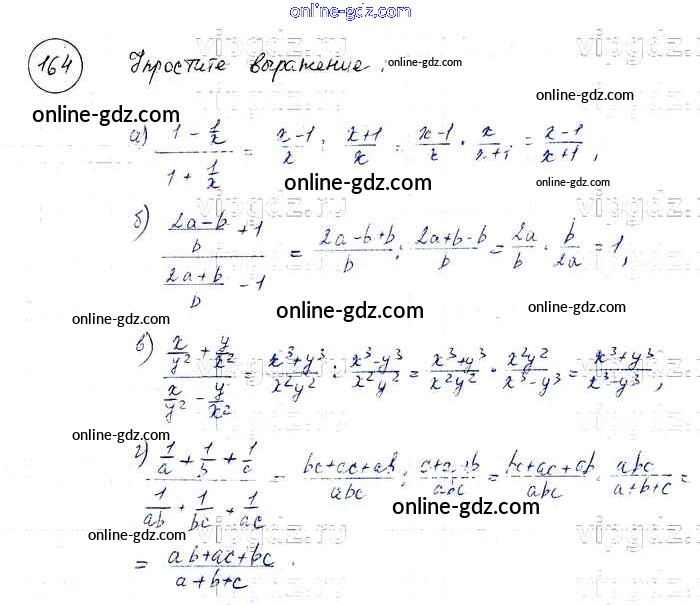 online-gdz.com
164 Упростите выражение.
vipgdz.ru
online-gdz.com
online-gdz.com
online-gdz.com
а) (1 - 1/x)/(1 + 1/x) = (x-1)/x : (x+1)/x = (x-1)/x · x/(x+1) = (x-1)/(x+1),
online-gdz.com
online-gdz.com
vipgdz.ru
б) ((2a-b)/b + 1)/((2a+b)/b - 1) = (2a-b+b)/b : (2a+b-b)/b = 2a/b · b/2a = 1,
online-gdz.com
online-gdz.com
online-gdz.com
online-gdz.com
vipgdz.ru
в) (x/y² + y/x²)/(x/y² - y/x²) = (x³+y³)/(x²y²) : (x³-y³)/(x²y²) = (x³+y³)/(x²y²) · (x²y²)/(x³-y³) = (x³+y³)/(x³-y³),
online-gdz.com
online-gdz.com
г) (1/a + 1/b + 1/c)/(1/ab + 1/bc + 1/ac) = (bc+ac+ab)/abc : (c+a+b)/abc = (bc+ac+ab)/abc · abc/(a+b+c) =
online-gdz.com
online-gdz.com
online-gdz.com
= (ab+ac+bc)/(a+b+c).
vipgdz.ru
online-gdz.com